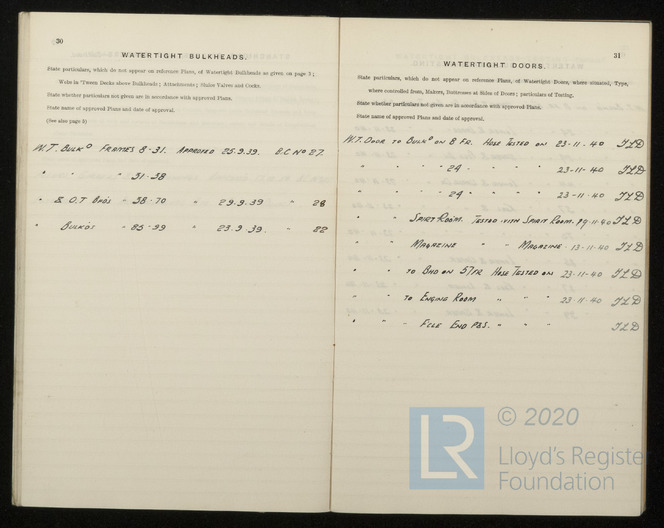 30
WATERTIGHT BULKHEADS.
State particulars, which do not appear on reference Plans, of Watertight Bulkheads as given on page 3;
Webs in 'Tween Decks above Bulkheads; Attachments; Sluice Valves and Cocks.
State whether particulars not given are in accordance with approved Plans.
State name of approved Plans and date of approval.
(See also page 8)
W.T. BULKD FRAMES 8-31. APPROVED 25.9.39. D.C No 27.
" " " 31-38
" & O.T BHDS " 38-70 " 29.9.39 " 28
" BULKDS " 85-99 " 23.9.39. " 22
31
WATERTIGHT DOORS.
State particulars, which do not appear on reference Plans, of Watertight Doors, where situated, Type,
where controlled from, Makers, Buttresses at Sides of Doors; particulars of Testing.
State whether particulars not given are in accordance with approved Plans.
State name of approved Plans and date of approval.
W.T. DOOR TO BULKD ON 8 FR. HOSE TESTED ON 23-11-40 JLD
" " " 24 " " " 23-11-40 JLD
" " " 24 " " " " 23-11-40 JLD
" " SPIRIT ROOM. TESTED WITH SPIRIT ROOM. 19-11-40 JLD
" " MAGAZINE " " MAGAZINE - 13-11-40 JLD
" " TO BHD ON 57 FR HOSE TESTED ON 23-11-40 JLD
" " TO ENGINE ROOM " " " 23-11-40 JLD
" " " FCLE END " " " JLD
LR
© 2020
Lloyd's Register
Foundation